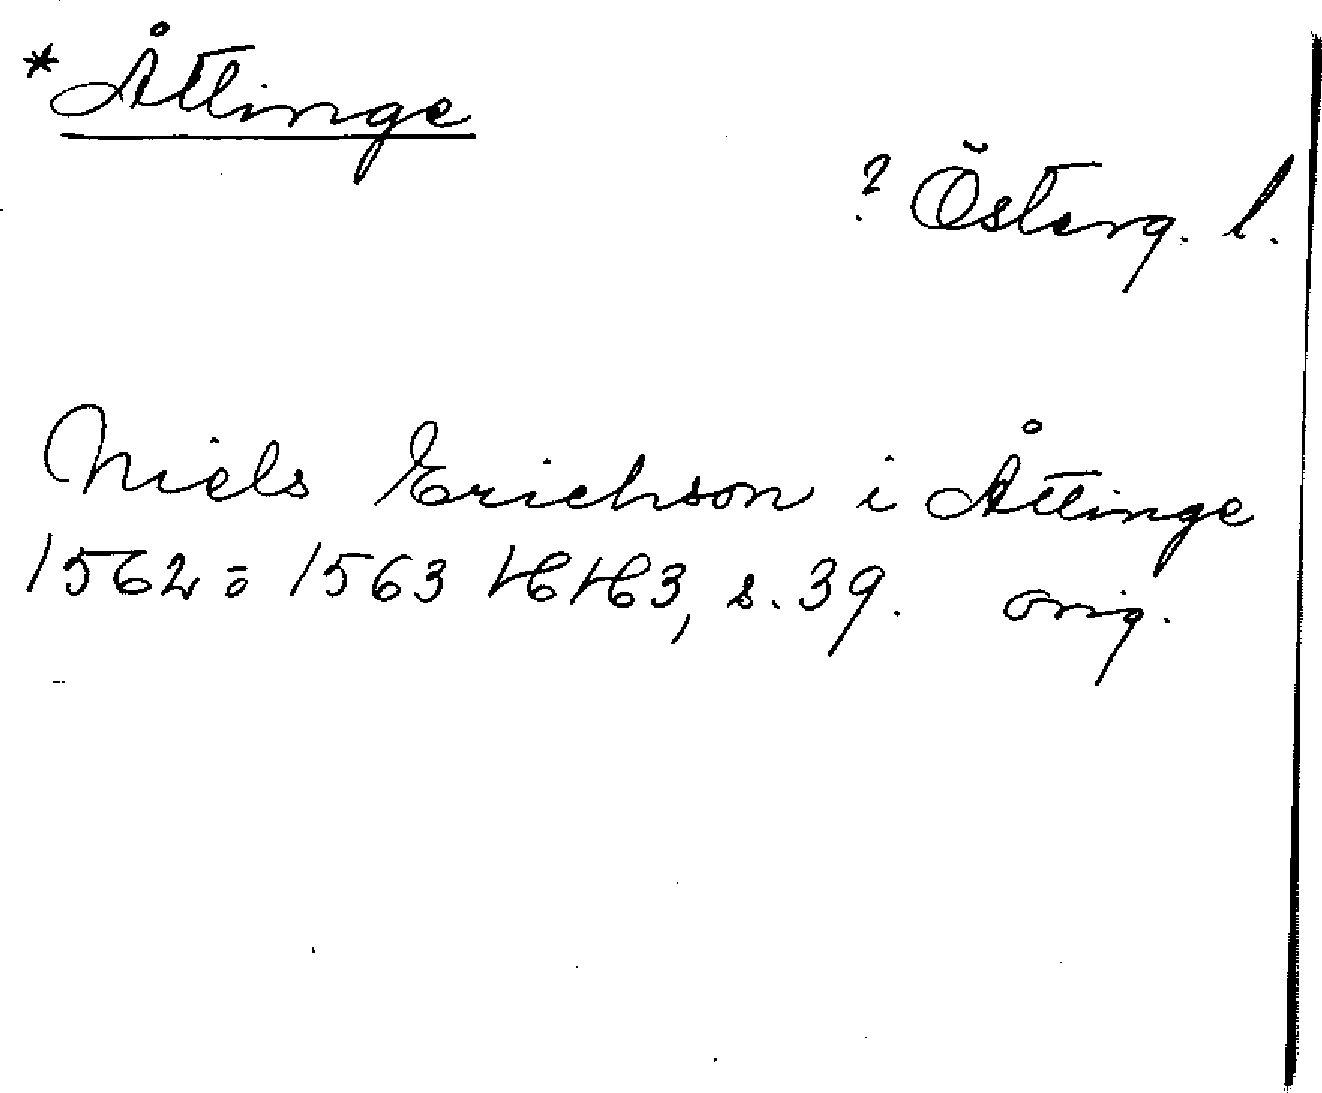 *Åttinge
? Österg. l.
Niels Erichson i Åttinge
1562 = 1563 HH3, s. 39. orig.